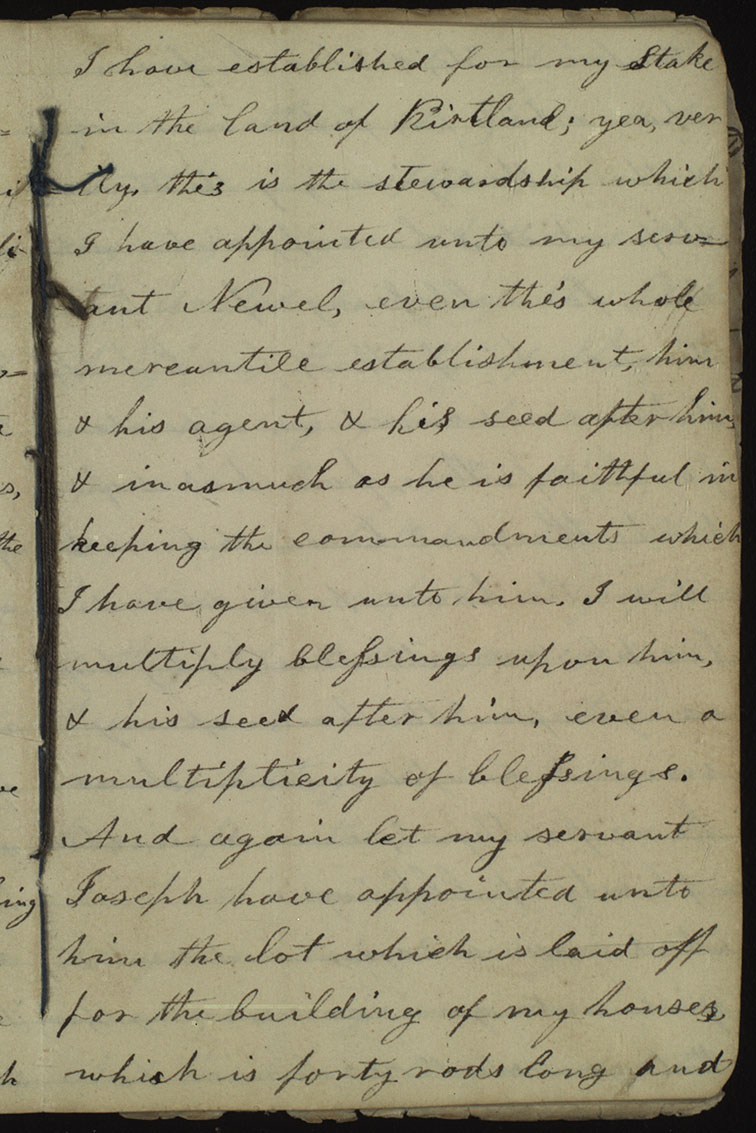 I have established for my Stake
in the land of Kirtland; yea, ver
ily, this is the stewardship which
I have appointed unto my serv=
ant Newel, even this whole
mercantile establishment, him
& his agent, & his seed after him,
& inasmuch as he is faithful in
keeping the commandments which
I have given unto him. I will
multiply blessings upon him,
& his seed after him, even a
multipticity of blessings.
And again let my servant
Joseph have appointed unto
him the lot which is laid off
for the building of my houses,
which is forty rods long and